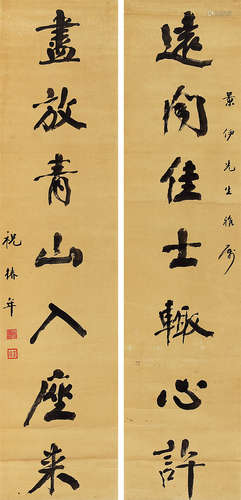 景伊先生雅属
遠聞佳士輒心許
盡放青山入座來
祝椿年